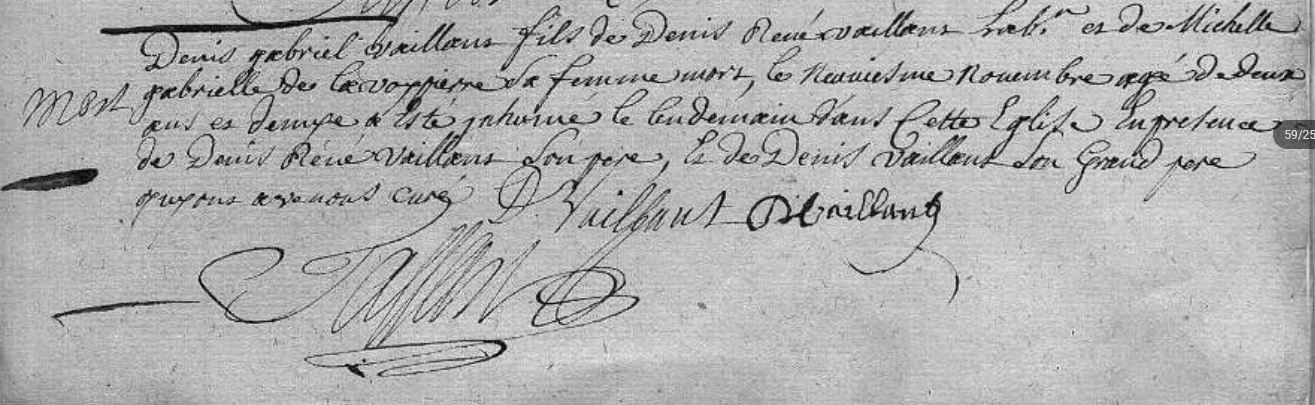 Denis gabriel vaillant fils de Denis René vaillant Lab.r et de Michelle
Mort gabrielle de sa femme mort, le neuviesme Nouembre agé de deux
ans et demye a Esté jnhumé le lendemain dans Cette Eglise En presence
59/25
de Denis René Vaillant son pere, Et de Denis Vaillant son Grand pere
auec nous curé D. Vaillant DRVaillant